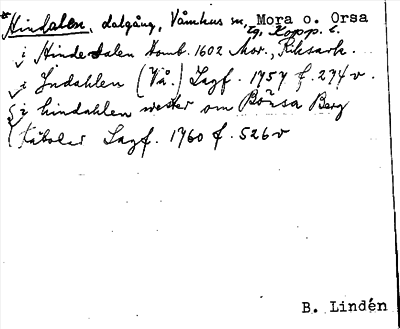 *Hindalen, dalgång, Våmhus sn, Mora o. Orsa
tg, Kopp. l.
i Hindedalen Komb. 1602 Mor., Riksark.
i Indahlen (Vå.) Lagf. 1757 f. 274 v.
i hindahlen wester om Börsa Berg
(Fäbolar Lagf. 1760 f. 526 v
B. Lindén